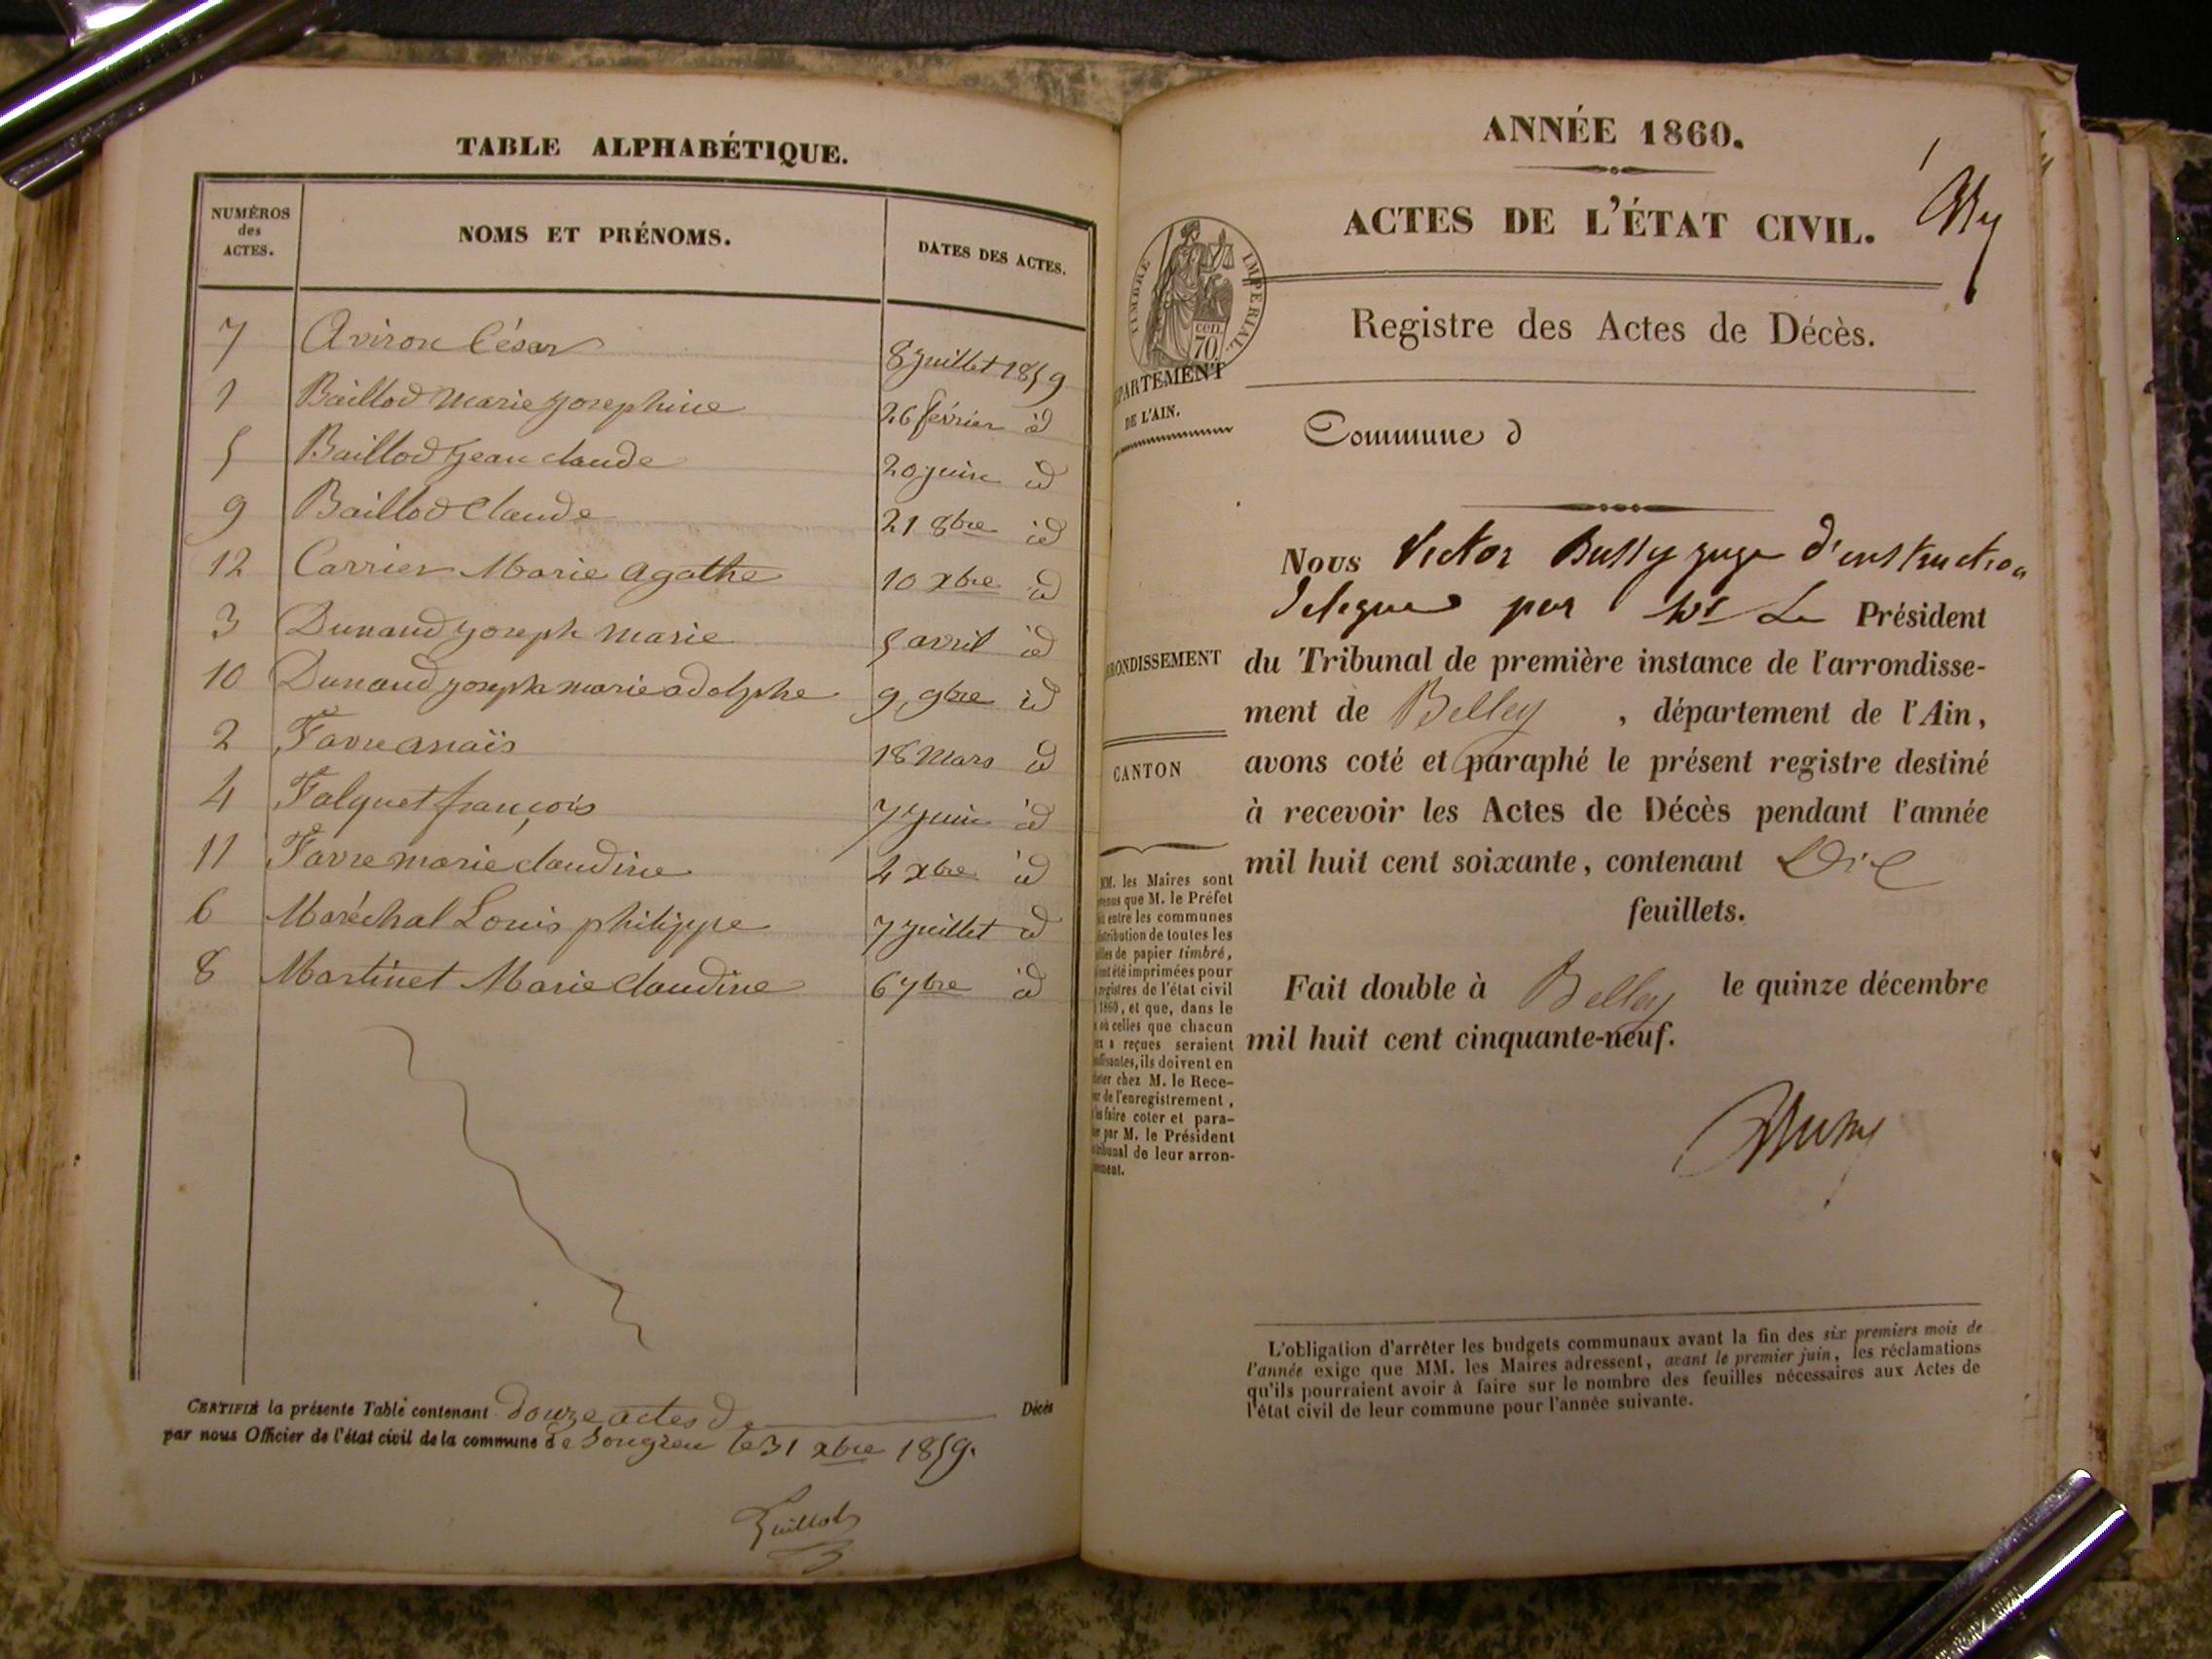 TABLE ALPHABÉTIQUE.
NUMÉROS des ACTES. NOMS ET PRÉNOMS. DATES DES ACTES.
7 Aviron César 8 juillet 1859
1 Baillod Marie Josephine 26 février id
5 Baillod Jean claude 20 juin id
9 Baillod Claude 21 8bre id
12 Carrier Marie Agathe 10 xbre id
3 Dunand Joseph Marie 5 avril id
10 Dunand joseph marie adolphe 9 9bre id
2 Favre anaïs 18 Mars id
4 Falquet françois 7 juin id
11 Favre marie claudine 4 xbre id
6 Maréchal Louis philippe 7 juillet id
8 Martinet Marie Claudine 6 7bre id
CERTIFIÉ la présente Table contenant douze actes d Décès
par nous Officier de l'état civil de la commune de Songieu le 31 xbre 1859.
ANNÉE 1860.
ACTES DE L'ÉTAT CIVIL.
TIMBRE IMPÉRIAL.
cen.
70
Registre des Actes de Décès.
PARTEMENT
DE L'AIN.
Commune d
Nous Victor Bully juge d'instruction
delegue par Mr Le Président
RONDISSEMENT
du Tribunal de première instance de l'arrondisse-
ment de Belley, département de l'Ain,
avons coté et paraphé le présent registre destiné
CANTON
à recevoir les Actes de Décès pendant l'année
mil huit cent soixante, contenant Dix
feuillets.
Fait double à Belley le quinze décembre
mil huit cent cinquante-neuf.
MM. les Maires sont
que M. le Préfet
entre les communes
stribution de toutes les
de papier timbré,
été imprimées pour
registres de l'état civil
1860, et que, dans le
où celles que chacun
a reçues seraient
, ils doivent en
chez M. le Rece-
de l'enregistrement,
faire coter et para-
par M. le Président
tribunal de leur arron-
L'obligation d'arrêter les budgets communaux avant la fin des six premiers mois de
l'année exige que MM. les Maires adressent, avant le premier juin, les réclamations
qu'ils pourraient avoir à faire sur le nombre des feuilles nécessaires aux Actes de
l'état civil de leur commune pour l'année suivante.